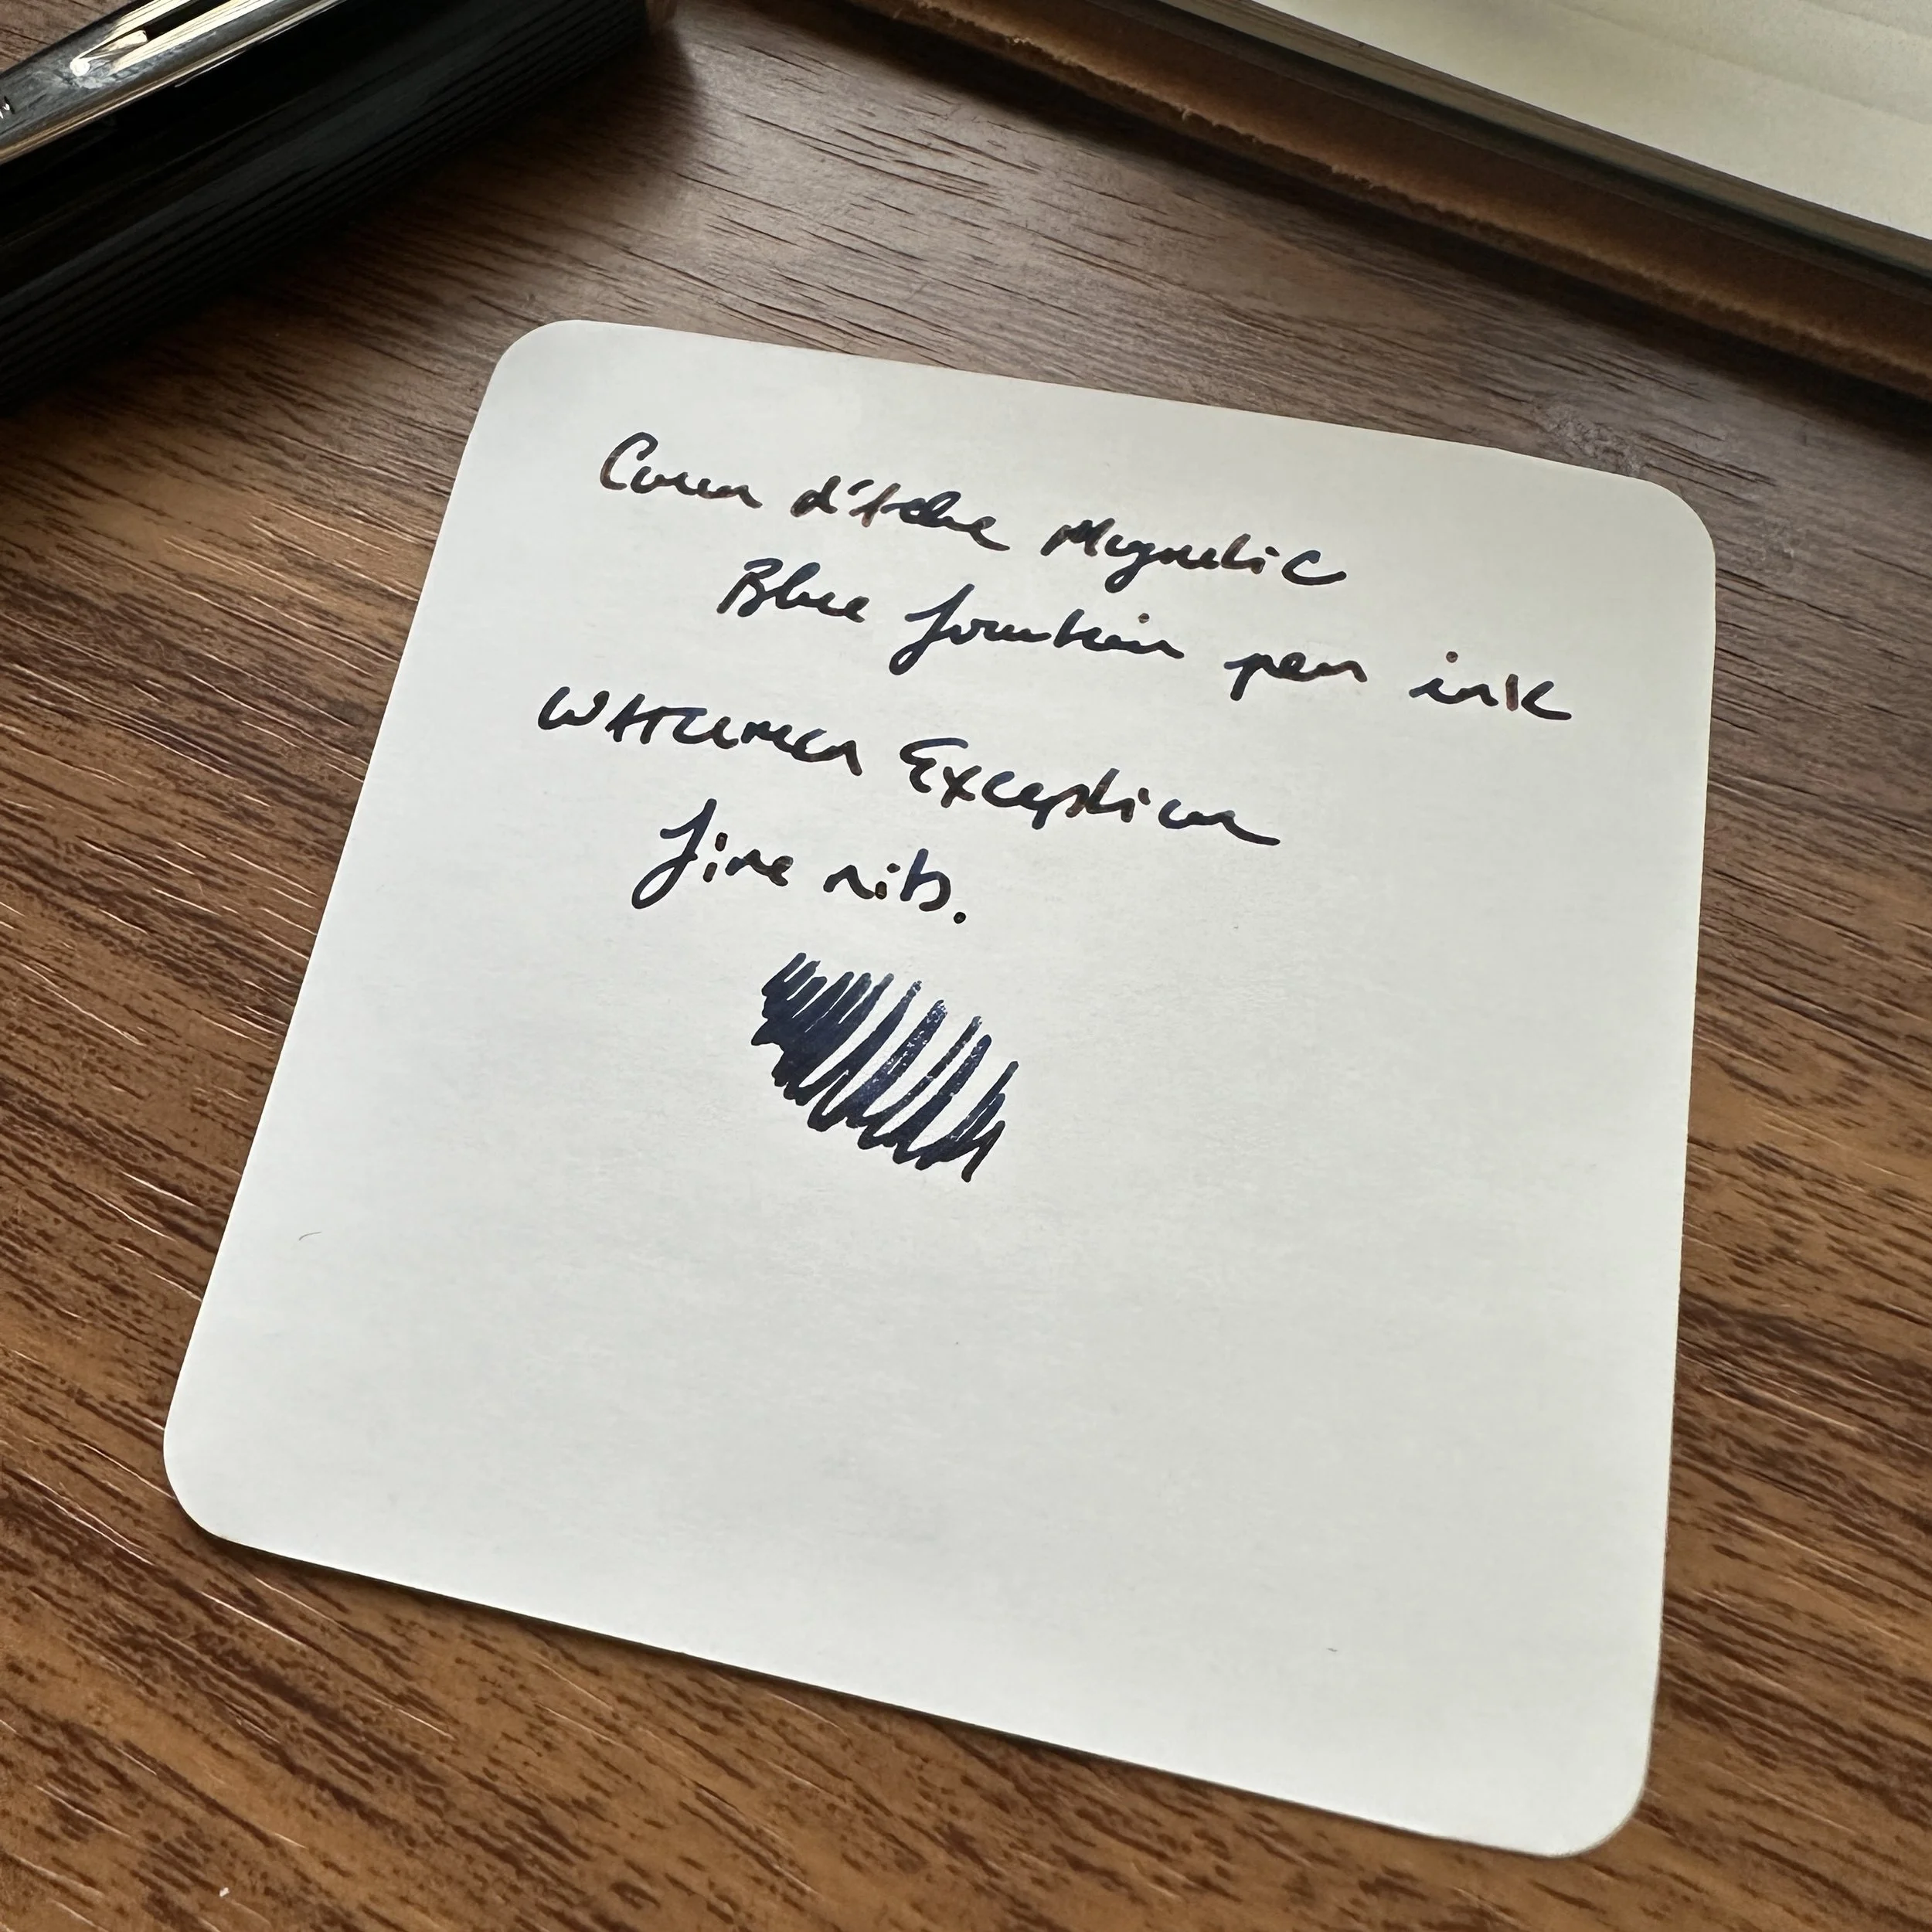 Caran d'Ache Magnetic
Blue fountain pen ink
WATERMAN Exception
fine nib.